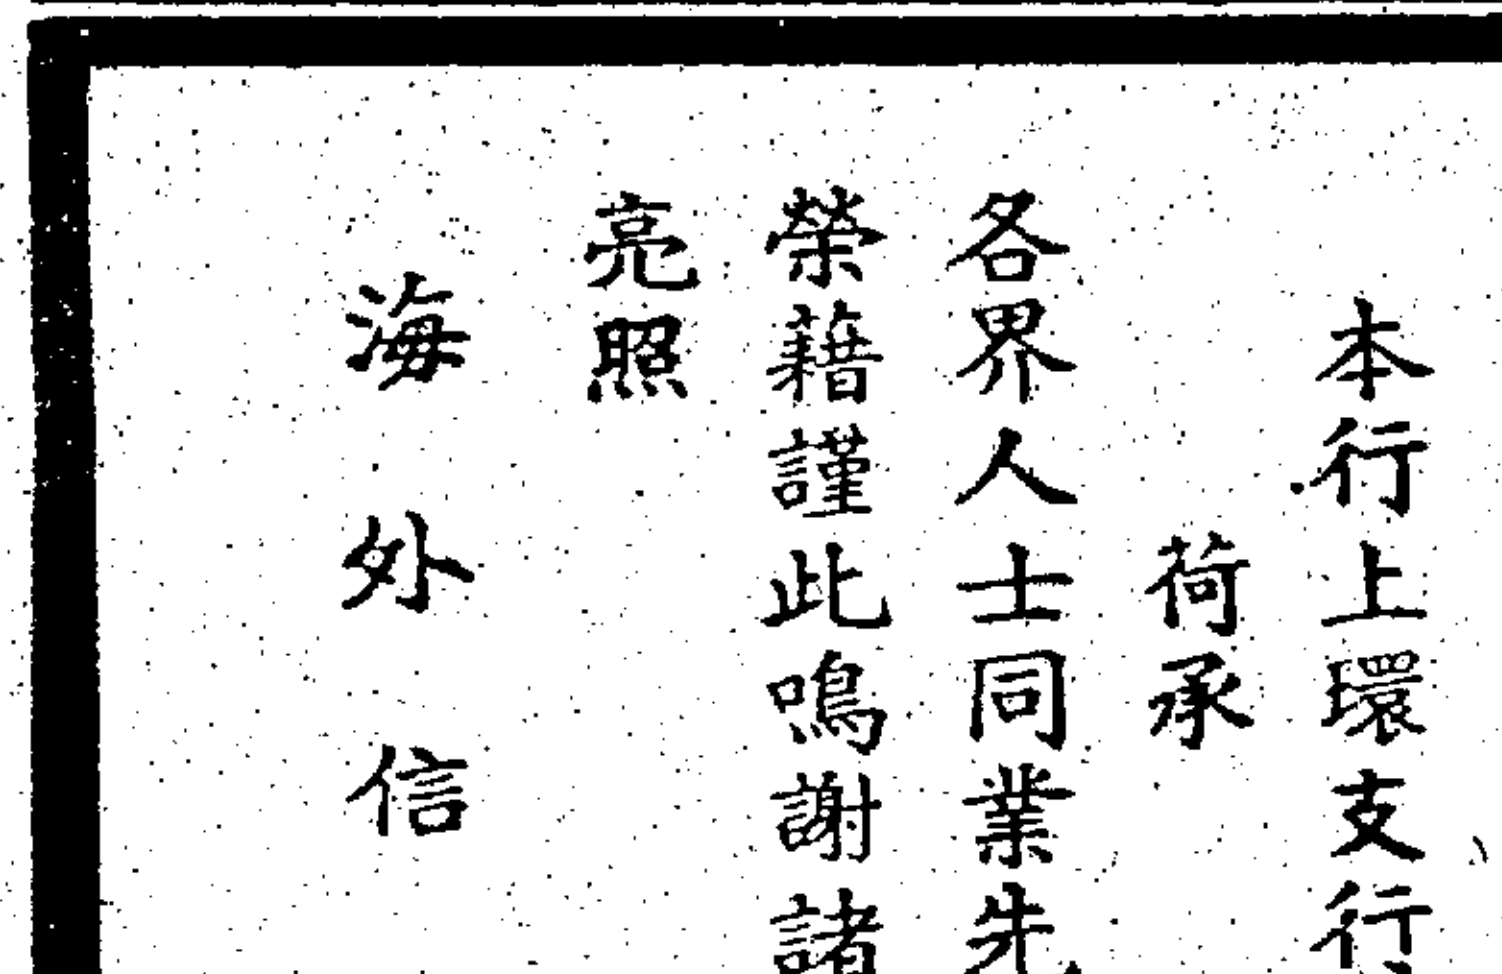 本行上環支行
荷承
各界人士同業先
榮藉謹此鳴謝諸
亮照
海外信